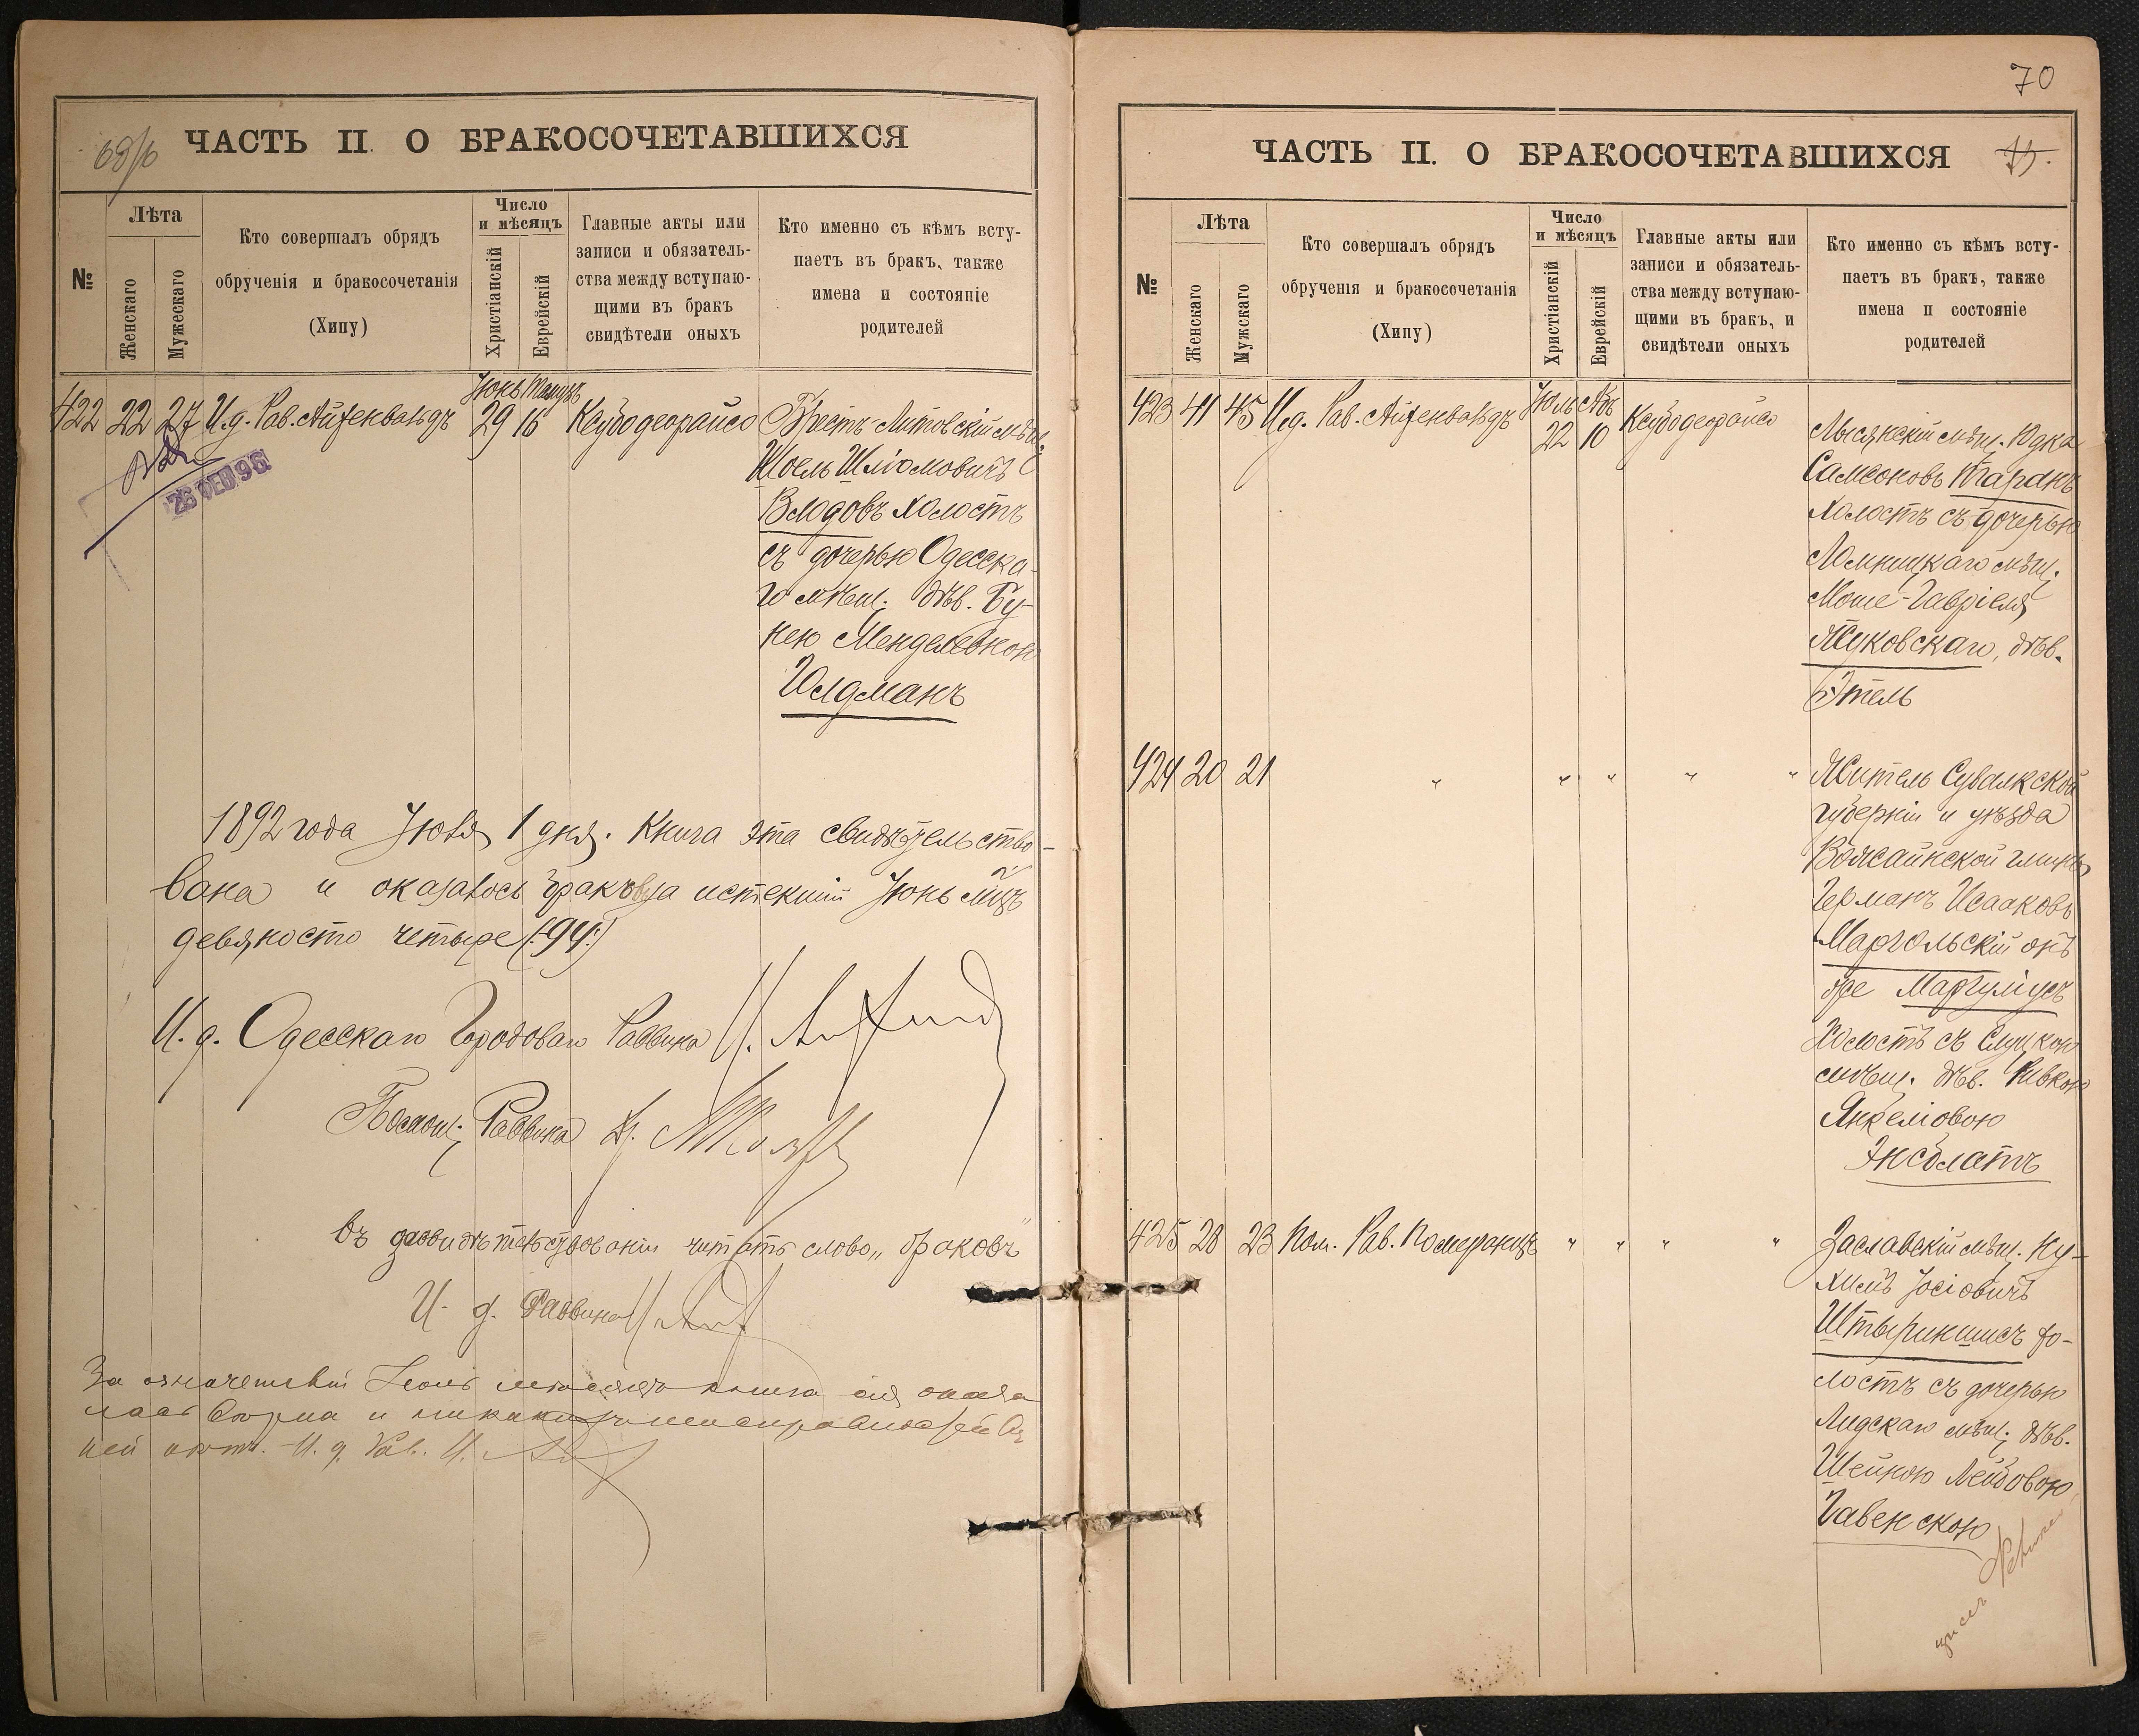 69/б
ЧАСТЬ II. О БРАКОСОЧЕТАВШИХСЯ
№
Лѣта
Женскаго
Мужескаго
Кто совершалъ обрядъ
обрученія и бракосочетанія
(Хипу)
Число
и мѣсяцъ
Христіанскій
Еврейскій
Главные акты или
записи и обязатель-
ства между вступаю-
щими въ бракъ
свидѣтели оныхъ
Кто именно съ кѣмъ всту-
паетъ въ бракъ, также
имена и состояніе
родителей
Іюнь Тамузъ
422 22 27 И.д. Рав. Айзенвальдъ 29 16 Ксубо деорайсо Брестъ-Литовскій мѣщ.
Шоель Шліомовичъ
Влодовъ холостъ
съ дочерью Одесска-
го мѣщ. дѣв. Бу-
нею Менделевною
Голдманъ
26 ФЕВ 96
1892 года Іюля 1 дня. Книга эта свидѣтельство-
вана и оказалось браковъ за истекшій Іюнь мѣц
девяносто четыре (:94:)
И. д. Одесскаго Городоваго Раввина
Помощ. Раввина
въ засвидѣтельствованіи читать слово „браковъ"
И. д. Раввина
За означенный Іюнь мѣсяцъ книга сія оказа
лась вѣрна и никакихъ неисправностей въ
ней нѣтъ. И. д. Рав.
70
ЧАСТЬ II. О БРАКОСОЧЕТАВШИХСЯ
№
Лѣта
Женскаго
Мужскаго
Кто совершалъ обрядъ
обрученія и бракосочетанія
(Хипу)
Число
и мѣсяцъ
Христіанскій
Еврейскій
Главные акты или
записи и обязатель-
ства между вступаю-
щими въ бракъ, и
свидѣтели оныхъ
Кто именно съ кѣмъ всту-
паетъ въ бракъ, также
имена и состояніе
родителей
Іюль Абъ
423 41 45 И.д. Рав. Айзенвальдъ 22 10 Ксубо деорайсо Лысянскій мѣщ. Юдка
Самсоновъ Таранъ
холостъ съ дочерью
Ломницкаго мѣщ.
Моше-Гавріеля
Жуковскаго, дѣв.
Этель
424 20 21 " " " " " Житель Сувалкской
губерніи и уѣзда
Германъ Исааковъ
Маргольскій онъ
же Маргуліусъ
Холостъ съ Слуцкою
мѣщ. дѣв. Ривкою
Янкеліовою
Энсблатъ
425 28 23 Пом. Рав. Померанцъ " " " " Заславскій мѣщ. Ну-
химъ Іосіовичъ
Штыркишисъ хо-
лостъ съ дочерью
Лидскаго мѣщ. дѣв.
Шейною Лейбовою
Гавенскою